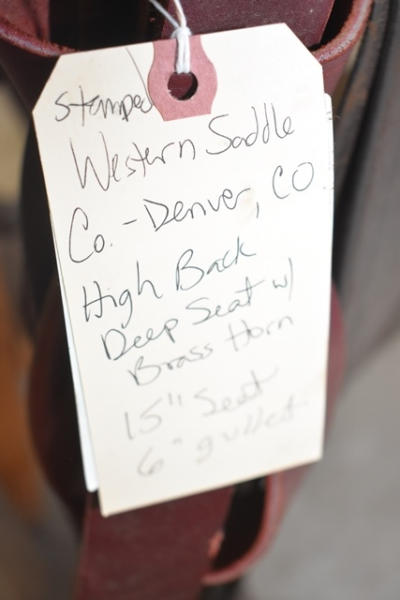 stamped
Western Saddle
Co. - Denver, CO
High Back
Deep Seat w/
Brass Horn
15" Seat
6" gullet